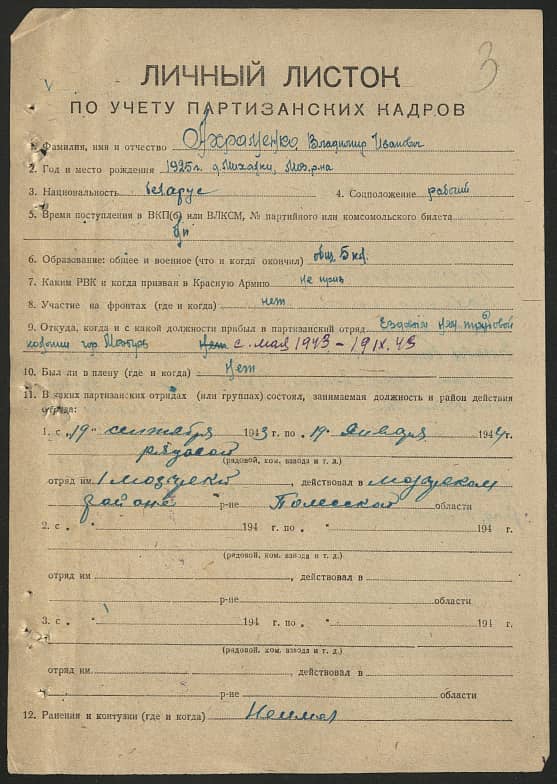 3
ЛИЧНЫЙ ЛИСТОК
ПО УЧЕТУ ПАРТИЗАНСКИХ КАДРОВ
1. Фамилия, имя и отчество Владимир Иванович
2. Год и место рождения 1925 г. д. Михалки, Моз. р-на
3. Национальность беларус 4. Соцположение рабочий
5. Время поступления в ВКП(б) или ВЛКСМ, № партийного или комсомольского билета
б/п
6. Образование: общее и военное (что и когда окончил) общ. 5 кл.
7. Каким РВК и когда призван в Красную Армию не приз
8. Участие на фронтах (где и когда) нет
9. Откуда, когда и с какой должности прибыл в партизанский отряд Ездовым трудовой
колонии гор. Мозырь с мая 1943 – 19 IX. 43
10. Был ли в плену (где и когда) Нет
11. В каких партизанских отрядах (или группах) состоял, занимаемая должность и район действия
отряда:
1. с „19" сентября 1943 г. по „19" Января 1944 г.
рядовой
(рядовой, ком. взвода и т. д.)
отряд им. 1 мозырский, действовал в мозырском
районе р-не Полесской области
2. с „ " 194 г. по „ " 194 г.
(рядовой, ком. взвода и т. д.)
отряд им. , действовал в
р-не области
3. с „ " 194 г. по „ " 194 г.
(рядовой, ком. взвода и т. д.)
отряд им. , действовал в
р-не области
12. Ранения и контузии (где и когда) Неимел